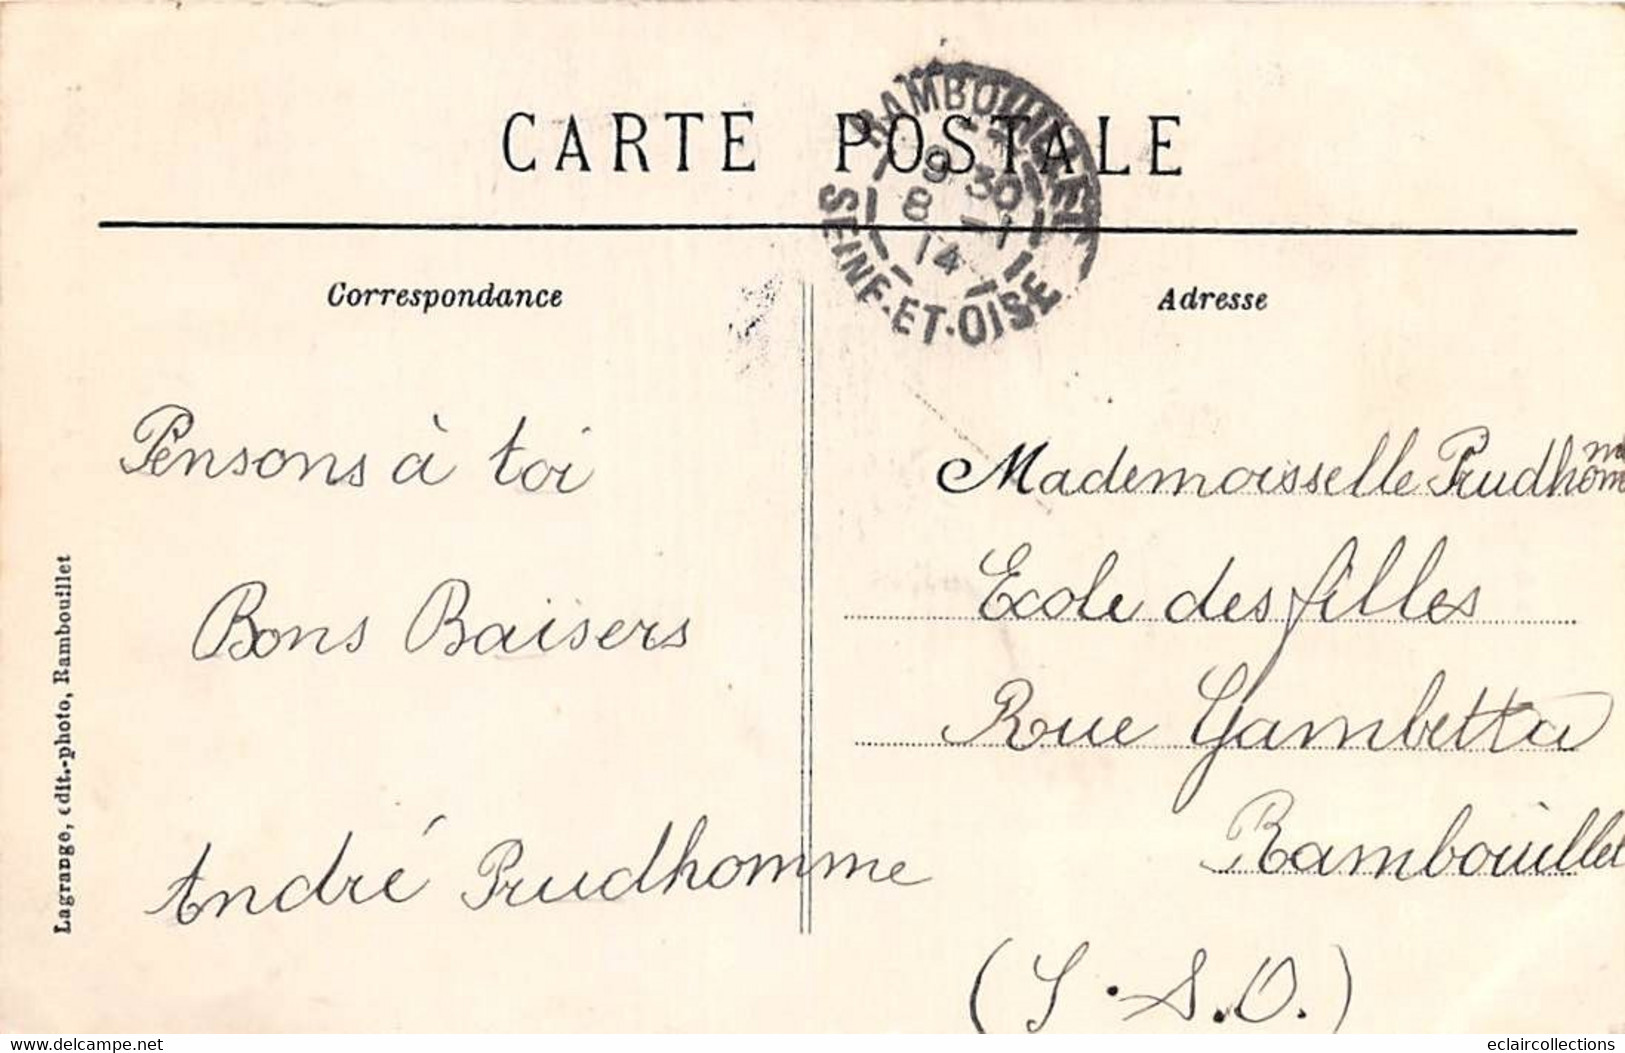 CARTE POSTALE
RAMBOUILLET
9 30
8 -1
14
SEINE-ET-OISE
Correspondance
Adresse
Pensons à toi
Bons Baisers
André Prudhomme
Mademoisselle Prudhomme
Ecole des filles
Rue Gambetta
Rambouillet
(S.S.O.)
Lagrange, édit.-photo, Rambouillet
www.delcampe.net
eclaircollections